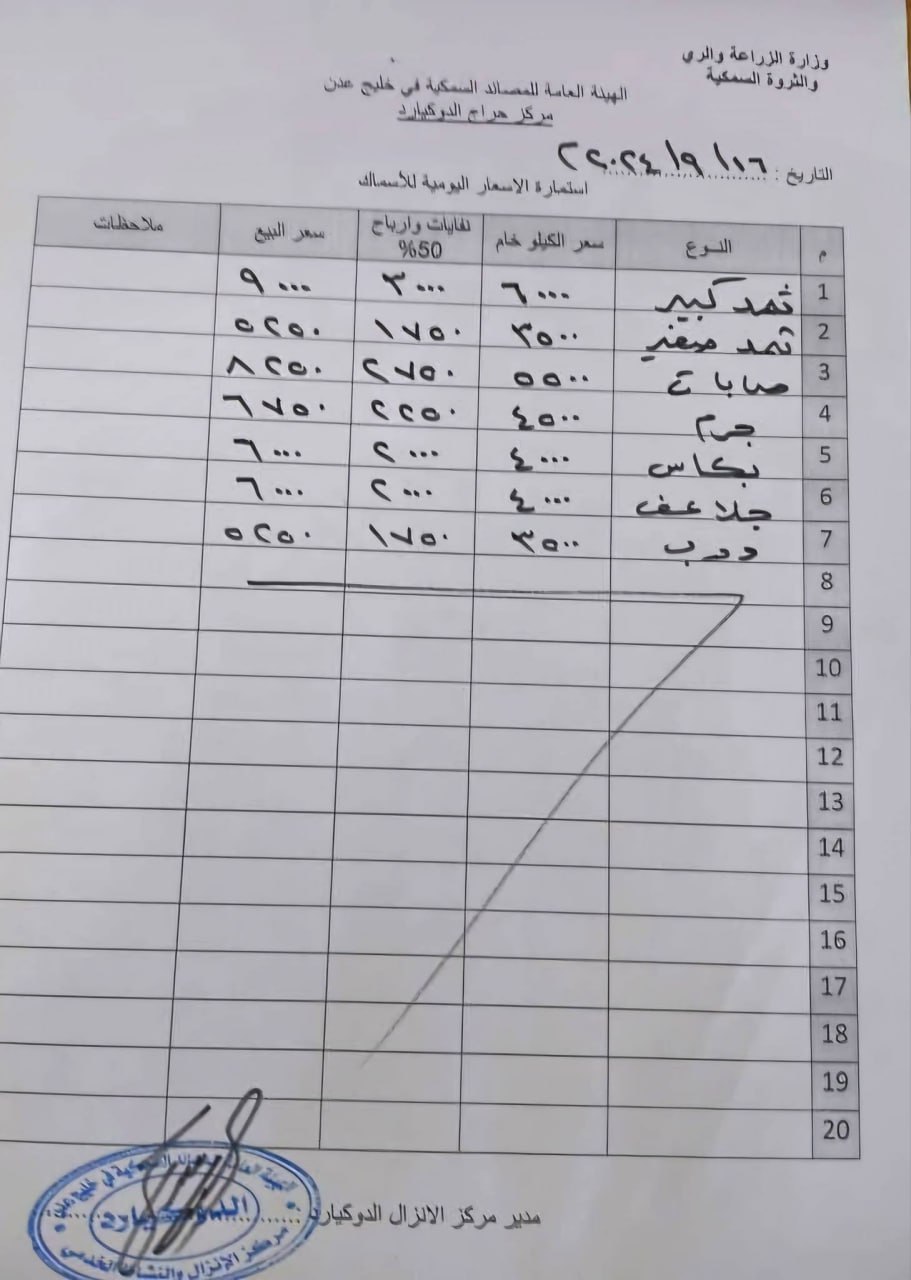 وزارة الزراعة والري
والثروة السمكية
الهيئة العامة للمصائد السمكية في خليج عدن
مركز حراج الدوكيارد
التاريخ : ١٦ / ٩ / ٢٠٢٤
استمارة الاسعار اليومية للأسماك
م النوع سعر الكيلو خام نفايات وارباح 50% سعر البيع ملاحظات
1 ثمد كبير ٦٠٠٠ ٣٠٠٠ ٩٠٠٠
2 ثمد صغير ٣٥٠٠ ١٧٥٠ ٥٢٥٠
3 صابات ٥٥٠٠ ٢٧٥٠ ٨٢٥٠
4 جرم ٤٥٠٠ ٢٢٥٠ ٦٧٥٠
5 بكاس ٤٠٠٠ ٢٠٠٠ ٦٠٠٠
6 جلاعف ٤٠٠٠ ٢٠٠٠ ٦٠٠٠
7 ٣٥٠٠ ١٧٥٠ ٥٢٥٠
8
9
10
11
12
13
14
15
16
17
18
19
20
مدير مركز الانزال الدوكيارد
مركز الإنزال والنشاط الخدمي